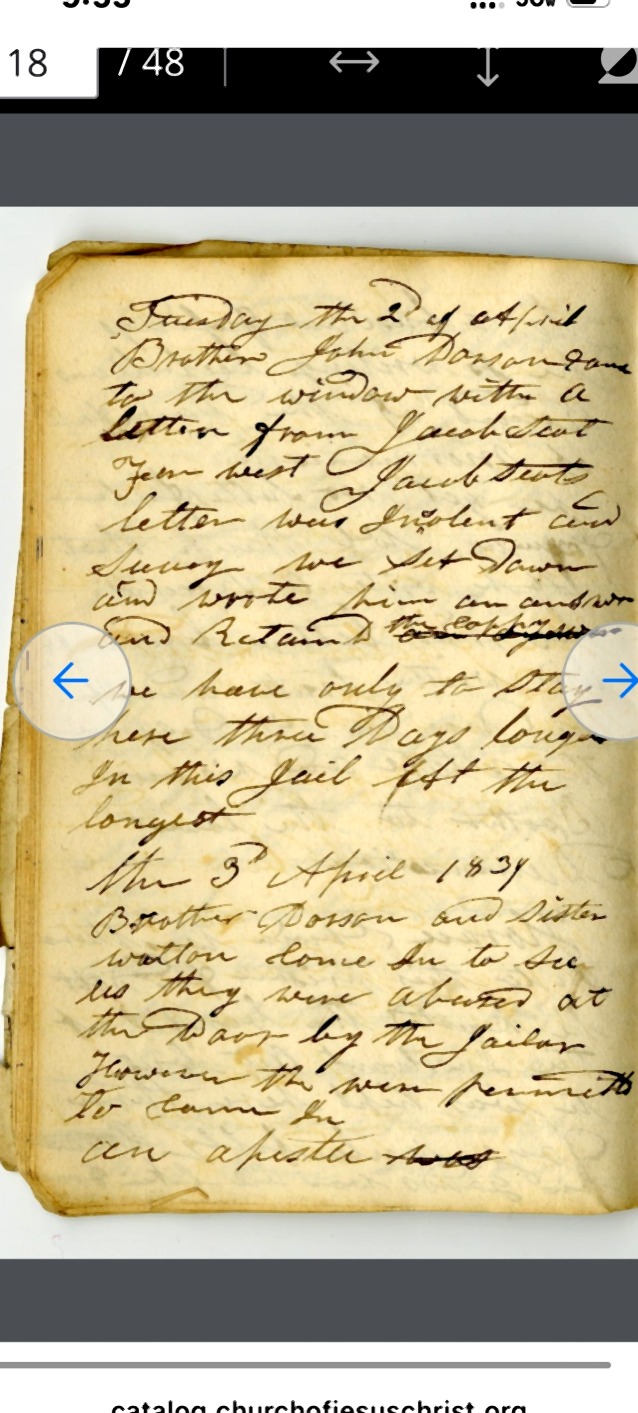 18 / 48
Tuesday the 2d of April
Brother John Dorson Came
to the window with a
letter from Jacob Scot
Jun west Jacob Scots
letter was Insolent and
we Set Down
and wrote him an answer
and Retaind the Coppy
we have only to Stay
here three Days longer
In this Jail At the
longest
the 3d April 1839
Brother Dorson and Sister
walton Come In to See
us they were abused at
the Door by the Jailor
However the were permitted
to Come In
an apistle was
catalog.churchofjesuschrist.org